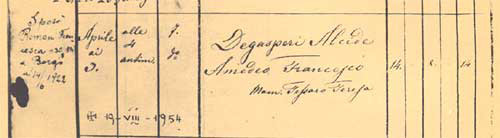 Sposò
Romani Fran-
cesca
a Borgo
1922
Aprile
ai
3.
alle
4
antim.
7.
Degasperi Alcide
Amedeo Francesco
Mam. Tessaro Teresa
14.
14
19-VIII-1954